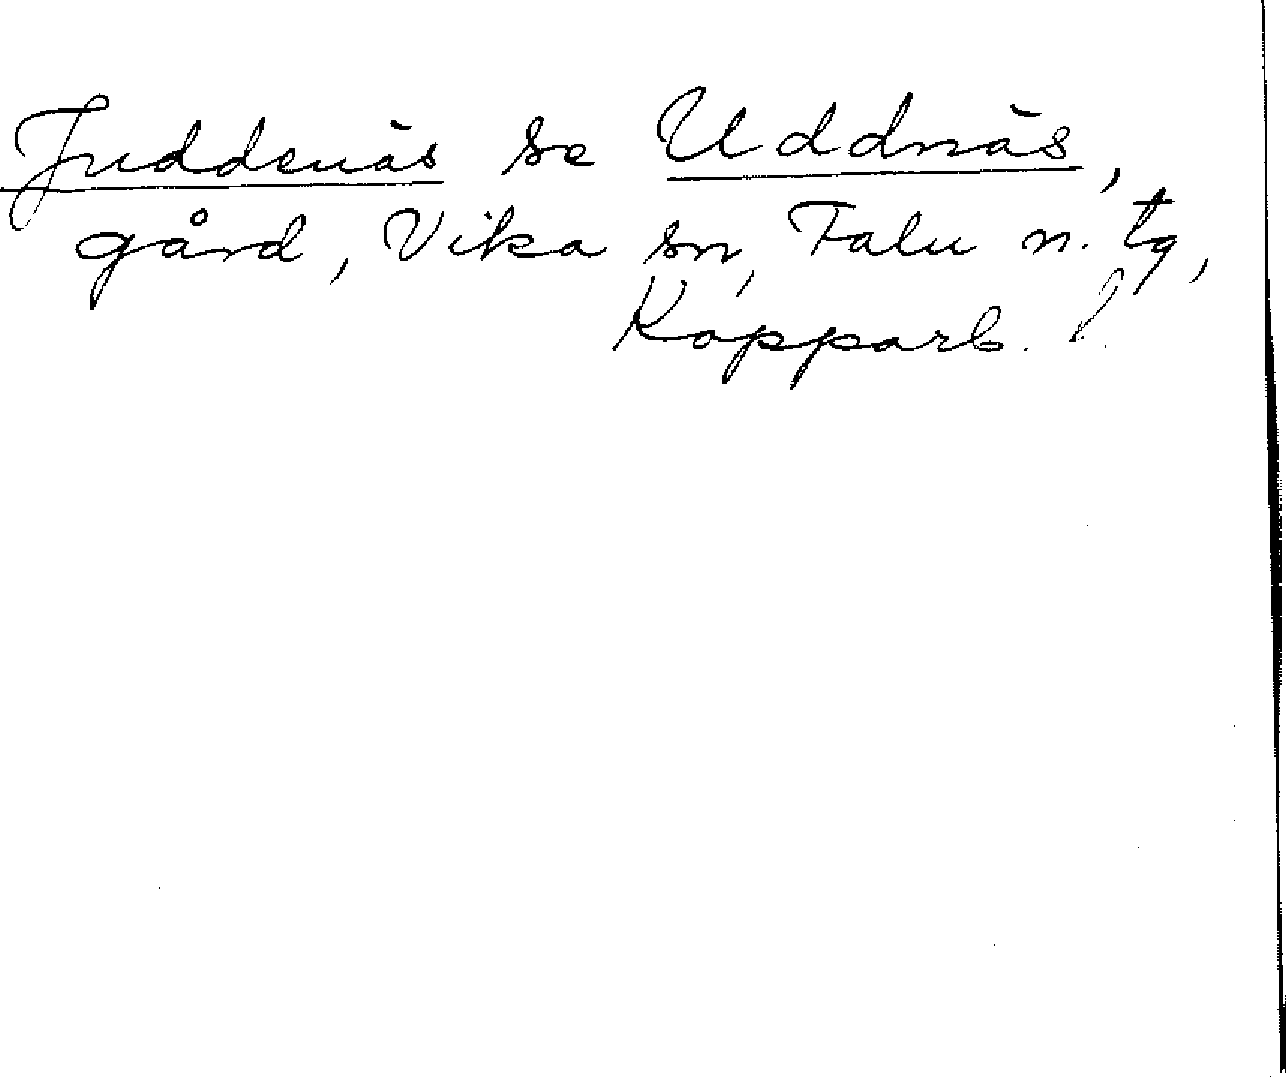 Juddenäs se Uddnäs,
gård, Vika sn, Falu n. tg,
Kopparb. l.